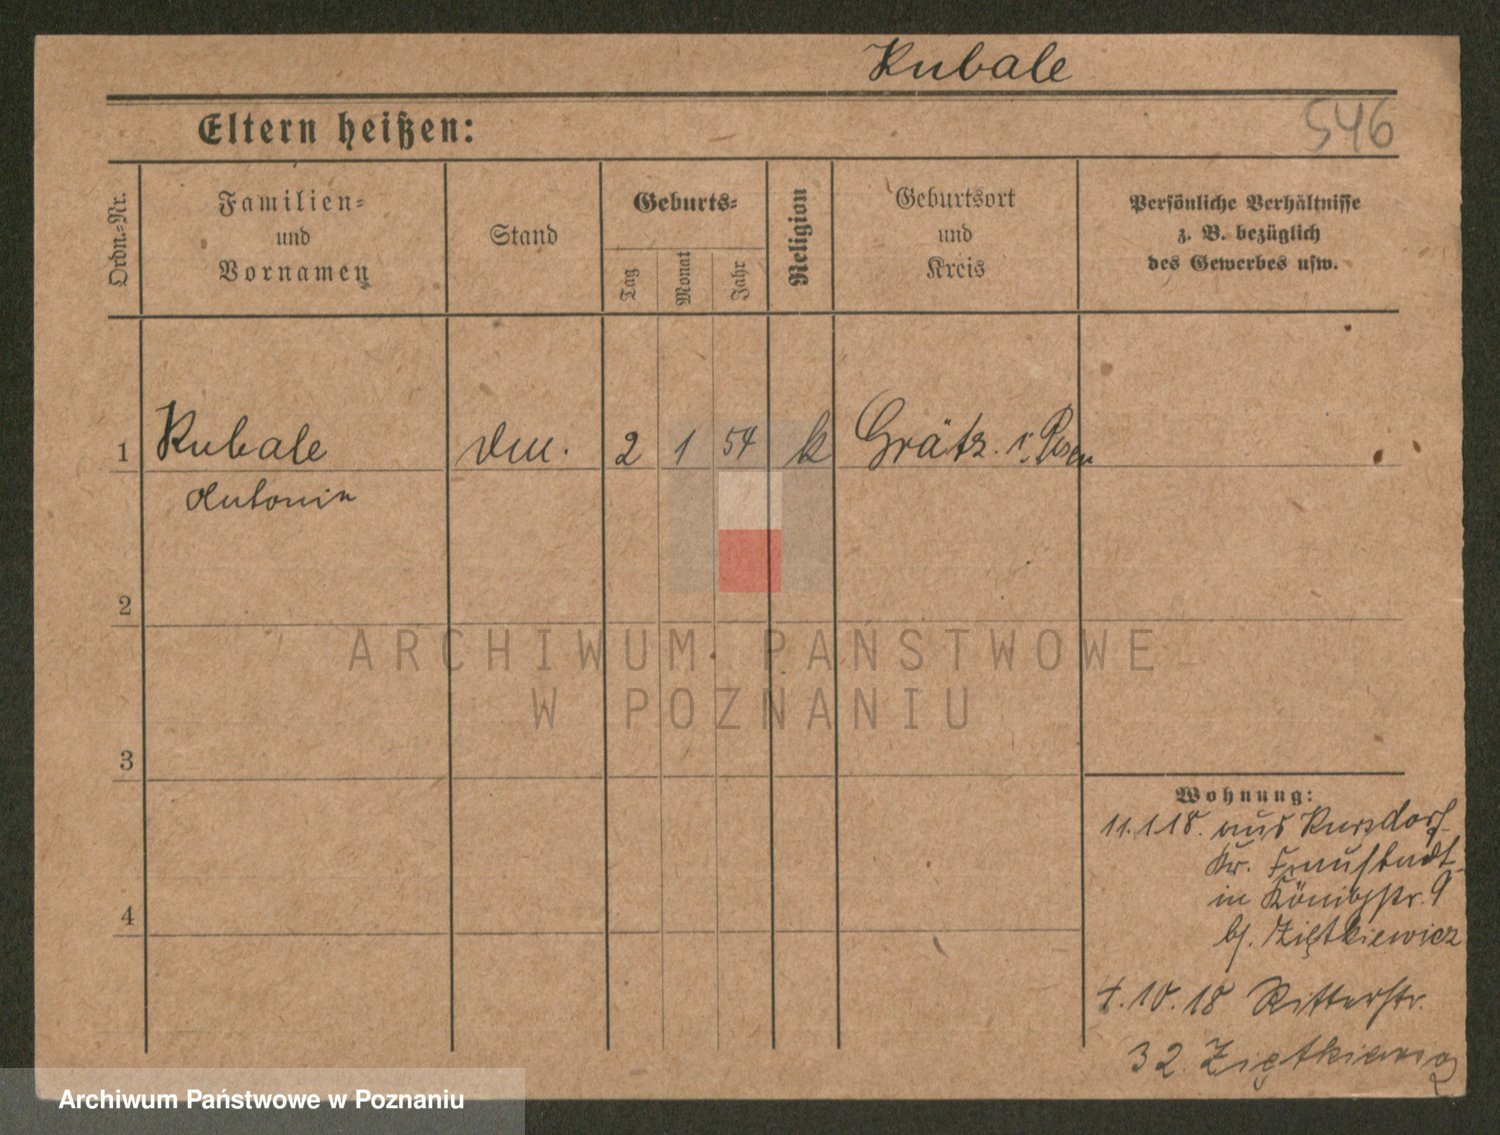 Kubale
546
Eltern heißen:
Ordn.-Nr.
Familien-
und
Vornamen
Stand
Geburts-
Tag
Monat
Jahr
Religion
Geburtsort
und
Kreis
Persönliche Verhältnisse
z. B. bezüglich
des Gewerbes usw.
1 Kubale 2 1 54 k Grätz Posen
Antonia
2
3
4
ARCHIWUM PAŃSTWOWE
W POZNANIU
Wohnung:
11.1.18. aus Kursdorf
Kr. Fraustadt
in Königstr. 9
b/. Ziętkiewicz
4.10.18 Ritterstr.
32. Ziętkiewicz
Archiwum Państwowe w Poznaniu